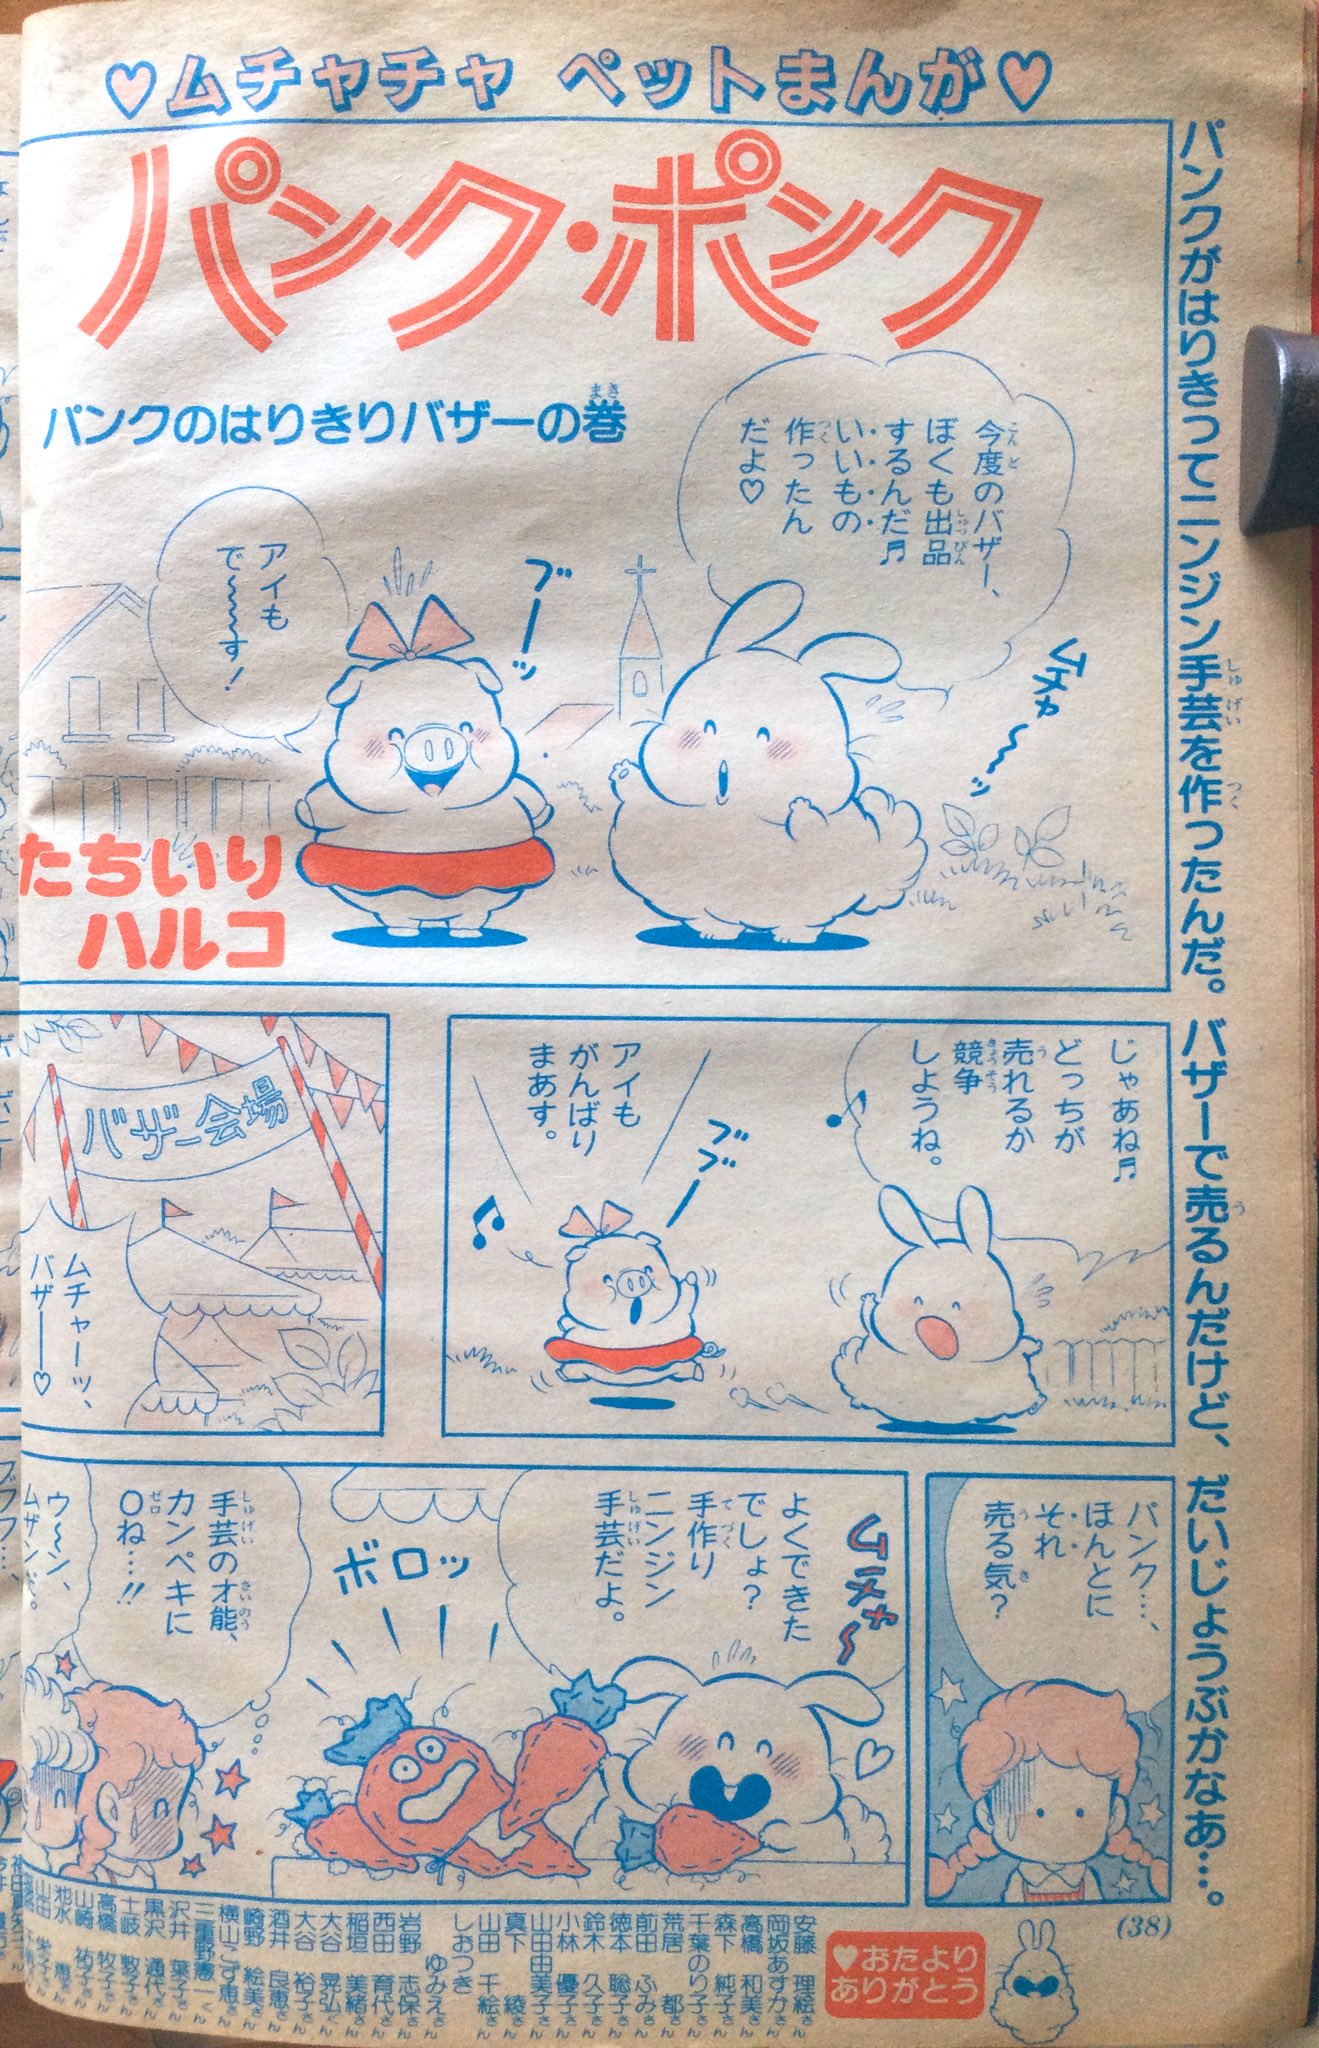 ♡ムチャチャ ペットまんが♡
パンク・ポンク
パンクのはりきりバザーの巻
たちいり
ハルコ
パンクがはりきってニンジン手芸を作ったんだ。バザーで売るんだけど、だいじょうぶかなあ…。
今度のバザー、
ぼくも出品
するんだ♬
いいもの
作ったん
だよ♡
ムチャ〜ッ
ブーッ
アイも
で〜〜〜す!
じゃあね♬
どっちが
売れるか
競争
しようね。
ブブーッ
アイも
がんばり
まあす。
バザー会場
ムチャーッ、
バザー♡
パンク…、
ほんとに
それ
売る気?
ムチャ〜
よくできた
でしょ?
手作り
ニンジン
手芸だよ。
ボロッ
手芸の才能、
カンペキに
〇ね…!!
ウ〜ン、
ムザンだ。
(38)
♥おたより
ありがとう
安藤 理絵さん
岡坂あすかさん
高橋 和美さん
森下 純子さん
千葉のり子さん
荒居 都さん
前田 ふみさん
徳本 聡子さん
鈴木 久子さん
小林 優子さん
山田由美子さん
真下 綾さん
山田 千絵さん
しおつき
ゆみえさん
岩野 志保さん
西田 育代さん
稲垣 美緒さん
大谷 晃弘くん
大谷 裕子さん
酒井 良恵さん
崎野 絵美さん
横山こず恵さん
三重野憲一くん
沢井 葉子さん
黒沢 通代さん
土岐 敦子さん
高橋 牧子さん
山崎 祐子さん
池水 恵さん